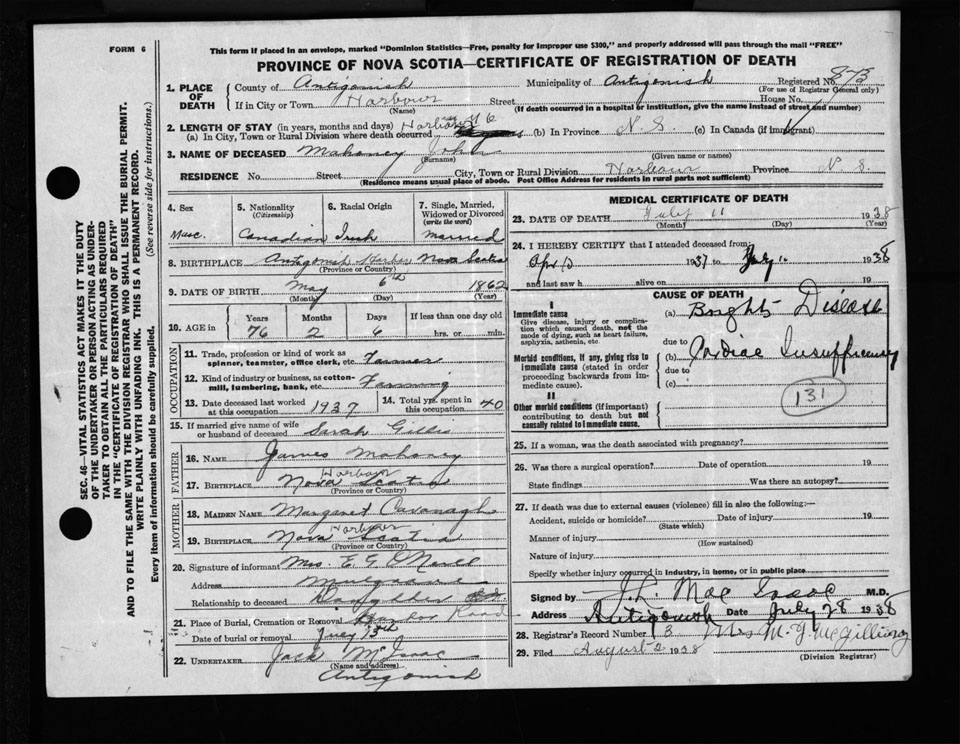 FORM 6
This form if placed in an envelope, marked "Dominion Statistics—Free, penalty for improper use $300," and properly addressed will pass through the mail "FREE"
PROVINCE OF NOVA SCOTIA—CERTIFICATE OF REGISTRATION OF DEATH
1. PLACE OF DEATH
County of Antigonish Municipality of Antigonish Registered No.
(For use of Registrar General only)
If in City or Town Harbour Street House No.
(Name) (If death occurred in a hospital or institution, give the name instead of street and number)
2. LENGTH OF STAY (in years, months and days)
(a) In City, Town or Rural Division where death occurred Harbour 76 years (b) In Province N. S. (c) In Canada (if immigrant)
3. NAME OF DECEASED Mahoney John
(Surname) (Given name or names)
RESIDENCE No. Street City, Town or Rural Division Harbour Province N. S.
(Residence means usual place of abode. Post Office Address for residents in rural parts not sufficient.)
4. Sex 5. Nationality (Citizenship) 6. Racial Origin 7. Single, Married, Widowed or Divorced (write the word)
Masc. Canadian Irish Married
8. BIRTHPLACE Antigonish Harbor Nova Scotia
(Province or Country)
9. DATE OF BIRTH May 6th 1862
(Month) (Day) (Year)
10. AGE in Years Months Days If less than one day old
76 2 6 hrs. or min.
OCCUPATION
11. Trade, profession or kind of work as spinner, teamster, office clerk, etc. Farmer
12. Kind of industry or business, as cotton-mill, lumbering, bank, etc. Farming
13. Date deceased last worked at this occupation 1937 14. Total yrs. spent in this occupation 40
15. If married give name of wife or husband of deceased Sarah Gillis
FATHER
16. NAME James Mahoney
17. BIRTHPLACE Harbour Nova Scotia
(Province or Country)
MOTHER
18. MAIDEN NAME Margaret Cavanagh
19. BIRTHPLACE Harbour Nova Scotia
(Province or Country)
20. Signature of informant Mrs. E. G. O'Neill
Address Mulgrave
Relationship to deceased Daughter
21. Place of Burial, Cremation or Removal Harbor
Date of burial or removal July 13th
22. UNDERTAKER Jack McIsaac
(Name and address)
Antigonish
MEDICAL CERTIFICATE OF DEATH
23. DATE OF DEATH July 11 1938
(Month) (Day) (Year)
24. I HEREBY CERTIFY that I attended deceased from:
1937 1938
and last saw h alive on 19
CAUSE OF DEATH
I
Immediate cause
Give disease, injury or complication which caused death, not the mode of dying, such as heart failure, asphyxia, asthenia, etc.
(a) Brights Disease
due to
Morbid conditions, if any, giving rise to immediate cause (stated in order proceeding backwards from immediate cause).
(b) Cardiac Insufficiency
due to
(c)
131
II
Other morbid conditions (if important) contributing to death but not causally related to immediate cause.
25. If a woman, was the death associated with pregnancy?
26. Was there a surgical operation? Date of operation 19
State findings Was there an autopsy?
27. If death was due to external causes (violence) fill in also the following:
Accident, suicide or homicide? Date of injury 19
(State which)
Manner of injury
(How sustained)
Nature of injury
Specify whether injury occurred in industry, in home, or in public place
Signed by J. L. MacIsaac M.D.
Address Antigonish Date July 28 1938
28. Registrar's Record Number 13 Mrs M. G. McGillivray
29. Filed August 2 1938 (Division Registrar)
SEC. 46—VITAL STATISTICS ACT MAKES IT THE DUTY
OF THE UNDERTAKER OR PERSON ACTING AS UNDER-
TAKER TO OBTAIN ALL THE PARTICULARS REQUIRED
IN THE "CERTIFICATE OF REGISTRATION OF DEATH"
AND TO FILE THE SAME WITH THE DIVISION REGISTRAR WHO SHALL ISSUE THE BURIAL PERMIT.
WRITE PLAINLY WITH UNFADING INK. THIS IS A PERMANENT RECORD.
Every item of information should be carefully supplied. (See reverse side for instructions.)